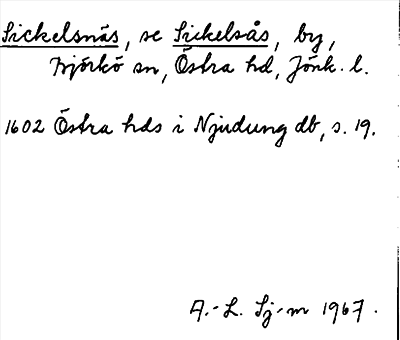 Sickelsnäs, se Sickelsås, by,
Björkö sn, Östra hd, Jönk. l.
1602 Östra hds i Njudung db, s. 19.
A.-L. Sj-m 1967.